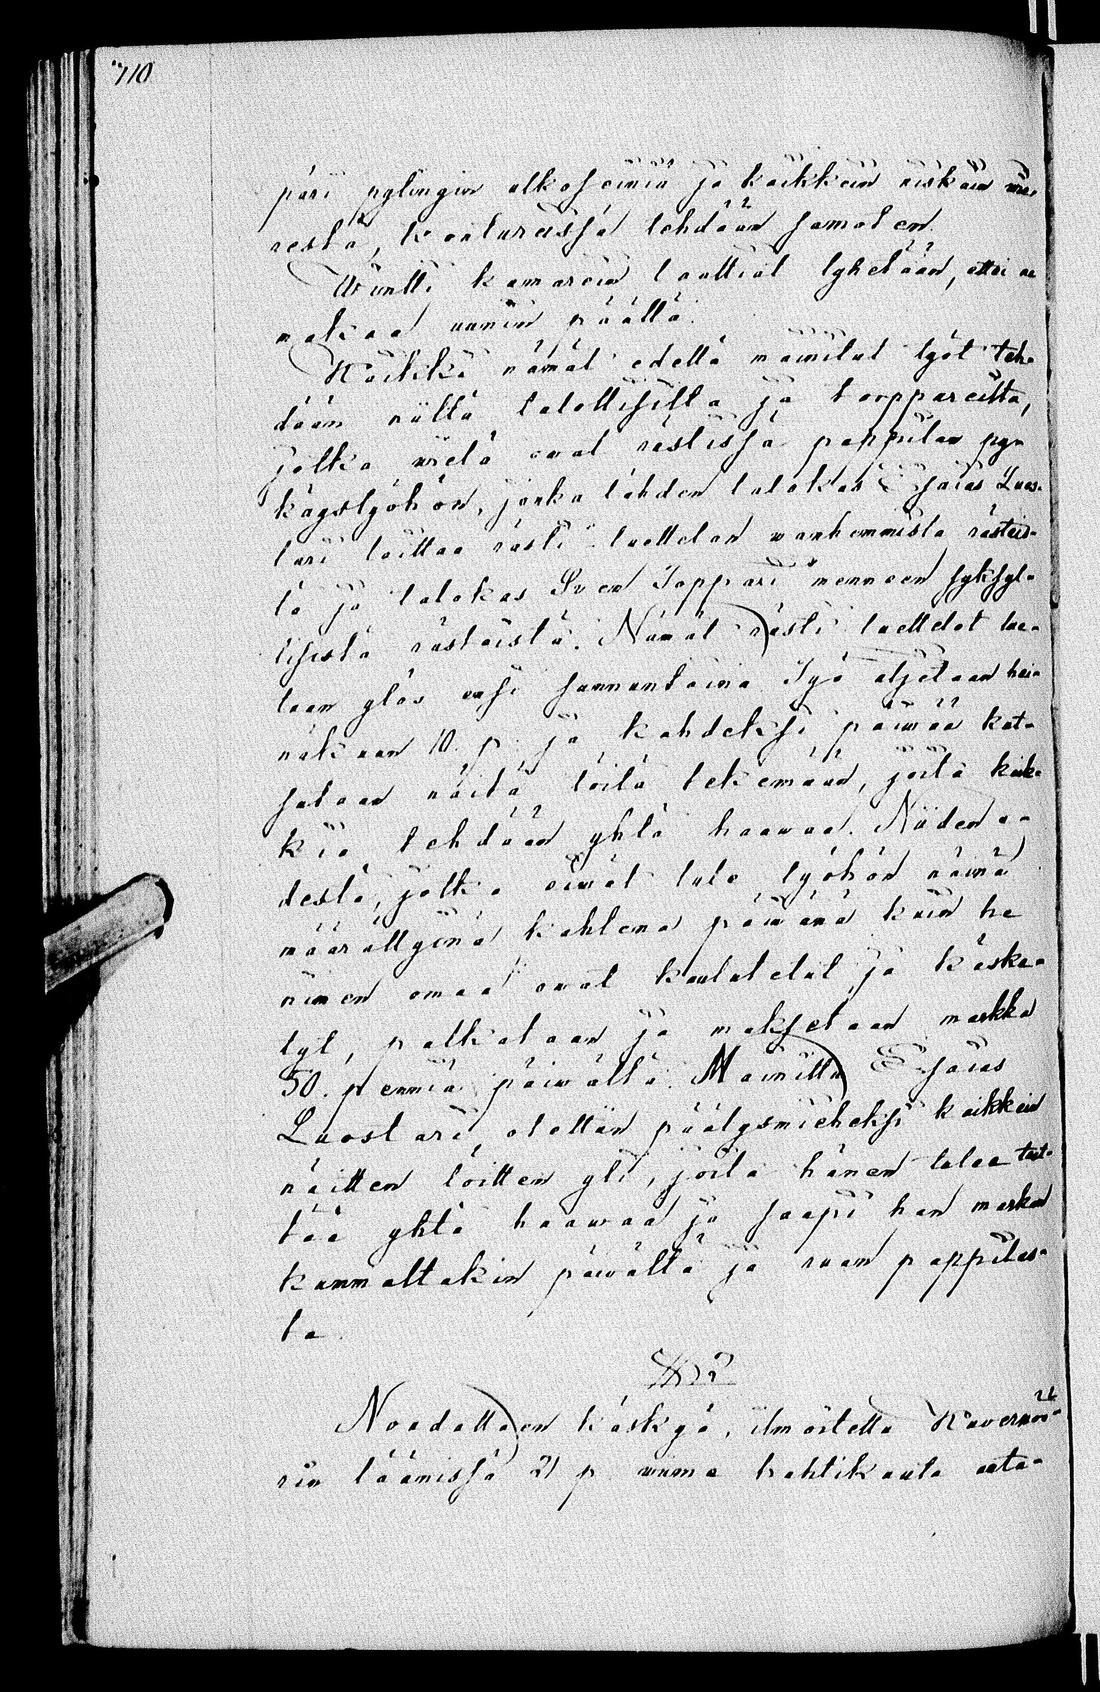 710
päri nylingin ulkoseinin ja kaikkein
restä, kontureissa tehdään samoten.
Wäntti kamarein laattiat lyhetään, ettei ne
makaa uunin päällä.
Kaikki nämät edellä mainitut työt teh-
dään niiltä talollisilta ja torppareilta,
jotka wielä owat rästissä pappilan py-
käystyöhön, jonka tähden talokas Esaias Luos-
tari laittaa rästi luettelon wanhemmista rästeis-
tä ja talokas Sven Toppari mennen syksyl-
lisistä rästeistä. Nämät rästi luettelot lue-
taan ylös ensi sunnuntaina. Työ aljetaan hei-
näkuun 10. p. ja kahdeksi päiwää kut-
sutaan näitä töitä tekemään, joita kaik-
kia tehdään yhtä haawaa. Niiden e-
destä, jotka eiwät tule työhön näinä
määrättyinä kahtena päiwänä kuin he
nimen omaa owat kuulutetut ja käske-
tyt, palkataan ja maksetaan markka
50. penniä päiwältä. Mainittu Esaias
Luostari, otettiin päälysmieheksi kaikkein
näitten töitten yli, joita hänen tulee teet-
tää yhtä haawaa ja saapi hän markan
kummaltakin päiwältä ja ruan pappilas-
ta.
§ 2
Noudattaen käskyä, ilmoitettu Kuvernöö-
rin läänissä 21 p. wiime huhtikuuta